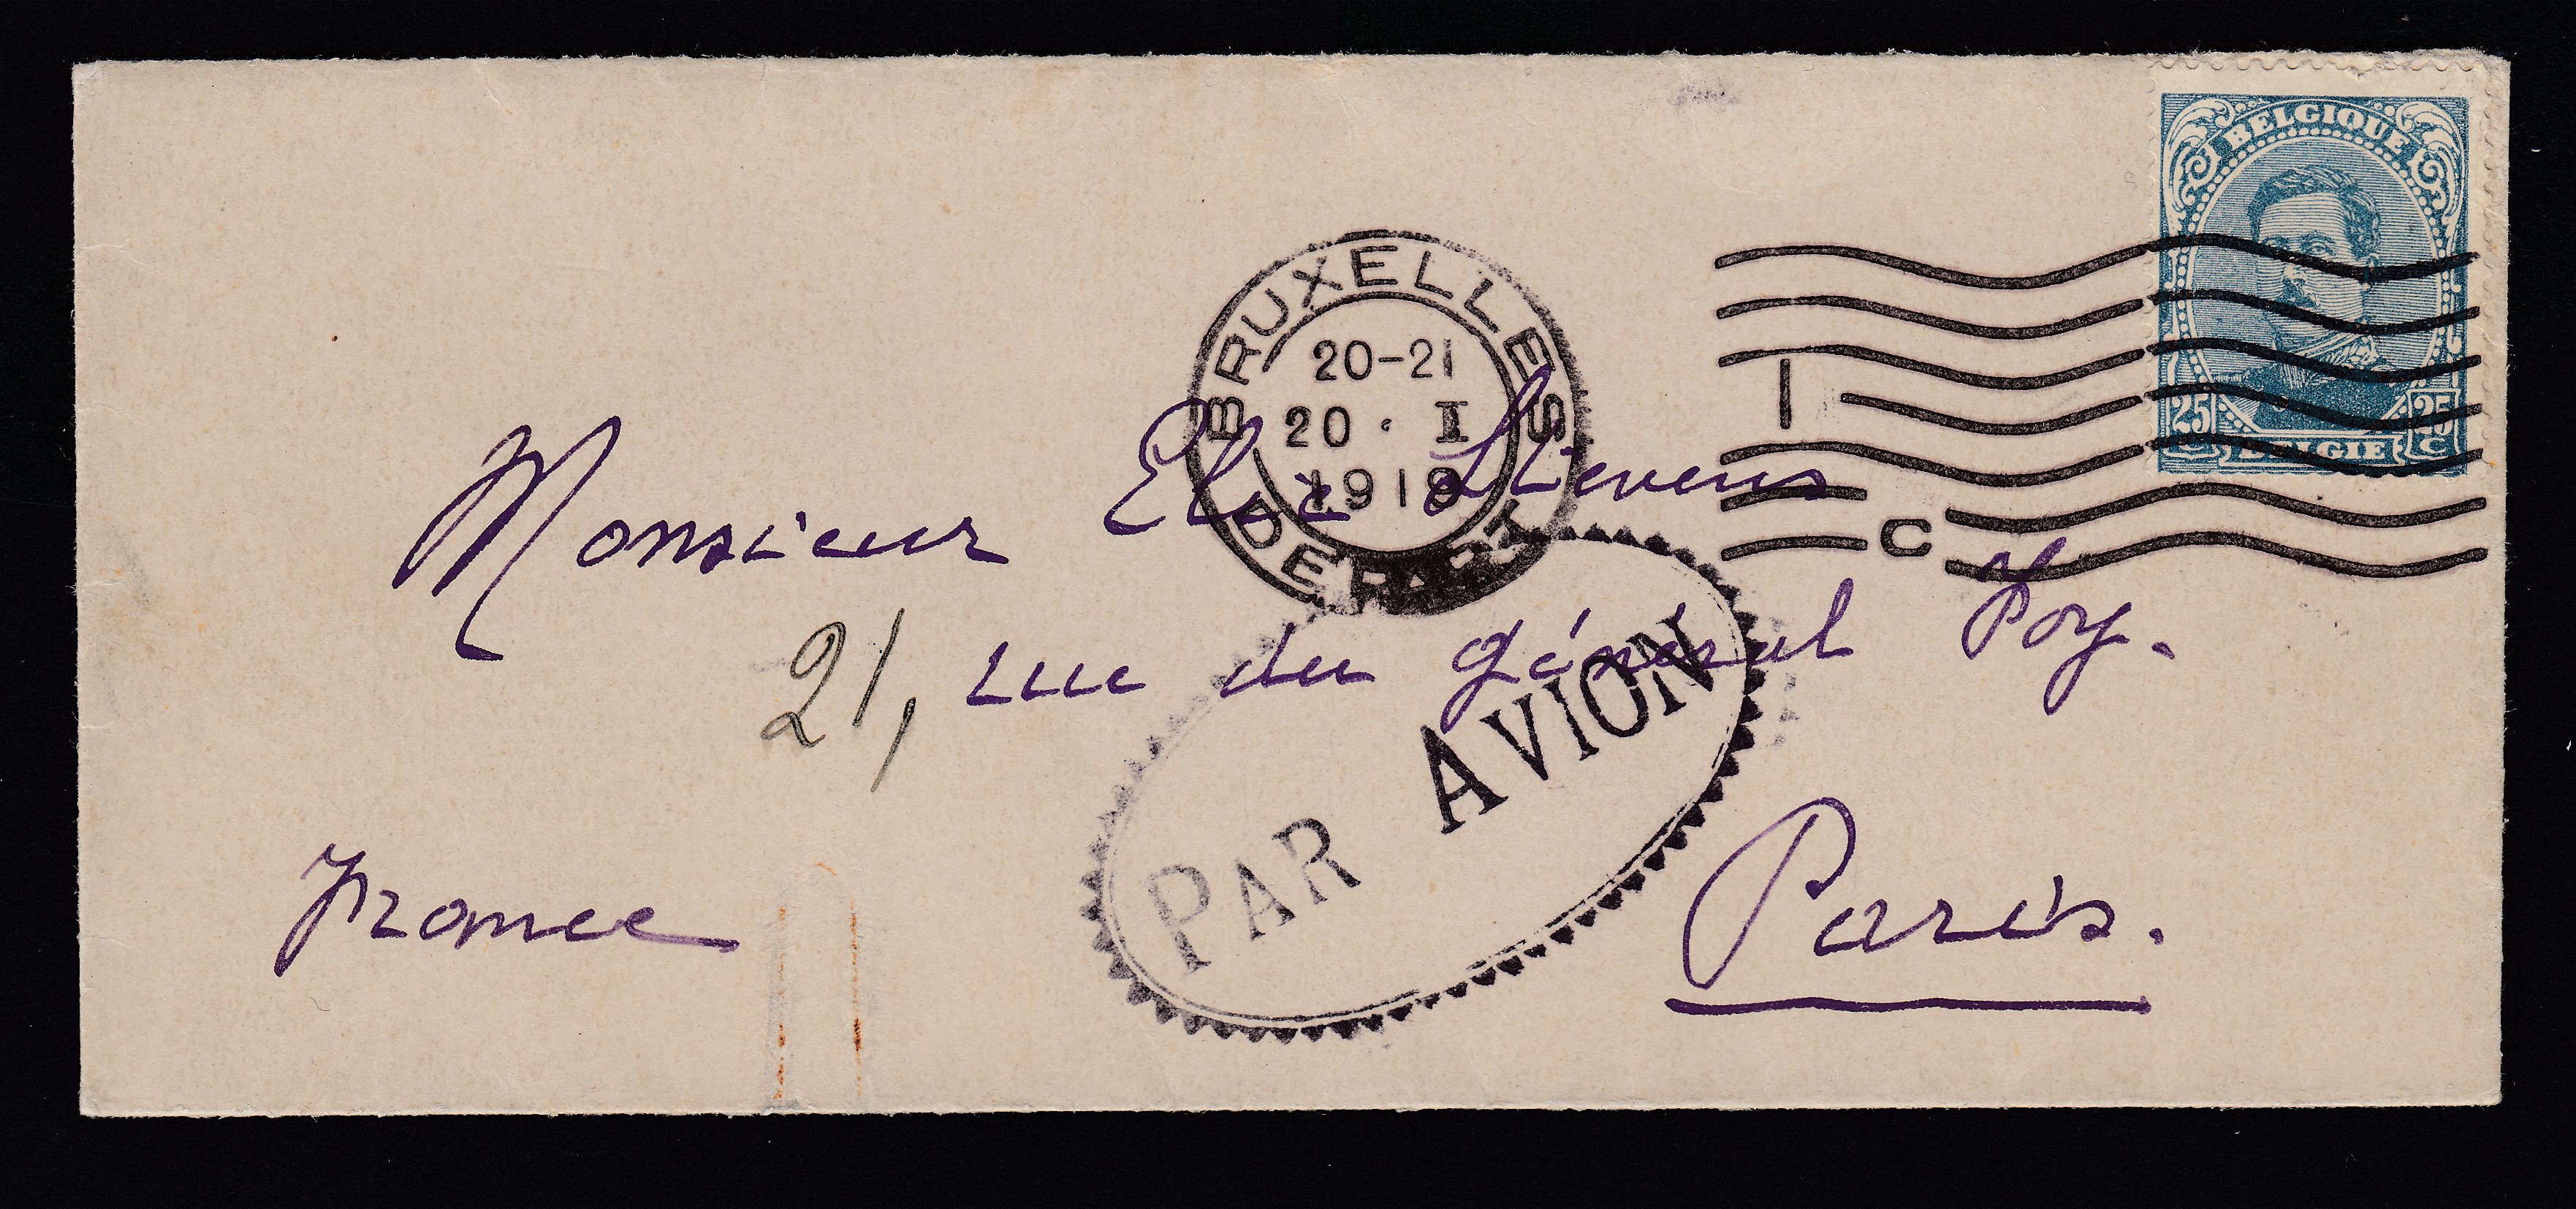 BELGIQUE
25 C 25 C
BELGIË
BRUXELLES
20-21
20 · I
DEPART
1 C
Monsieur Stevens
21, rue du général Foy.
PAR AVION
France
Paris.